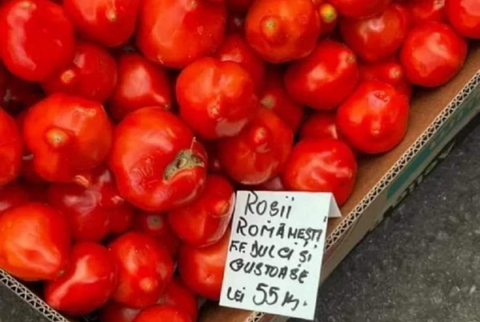 ROSII
ROMÂNEȘTI
FF. DULCI ȘI
GUSTOASE
LEI 55 Kg.